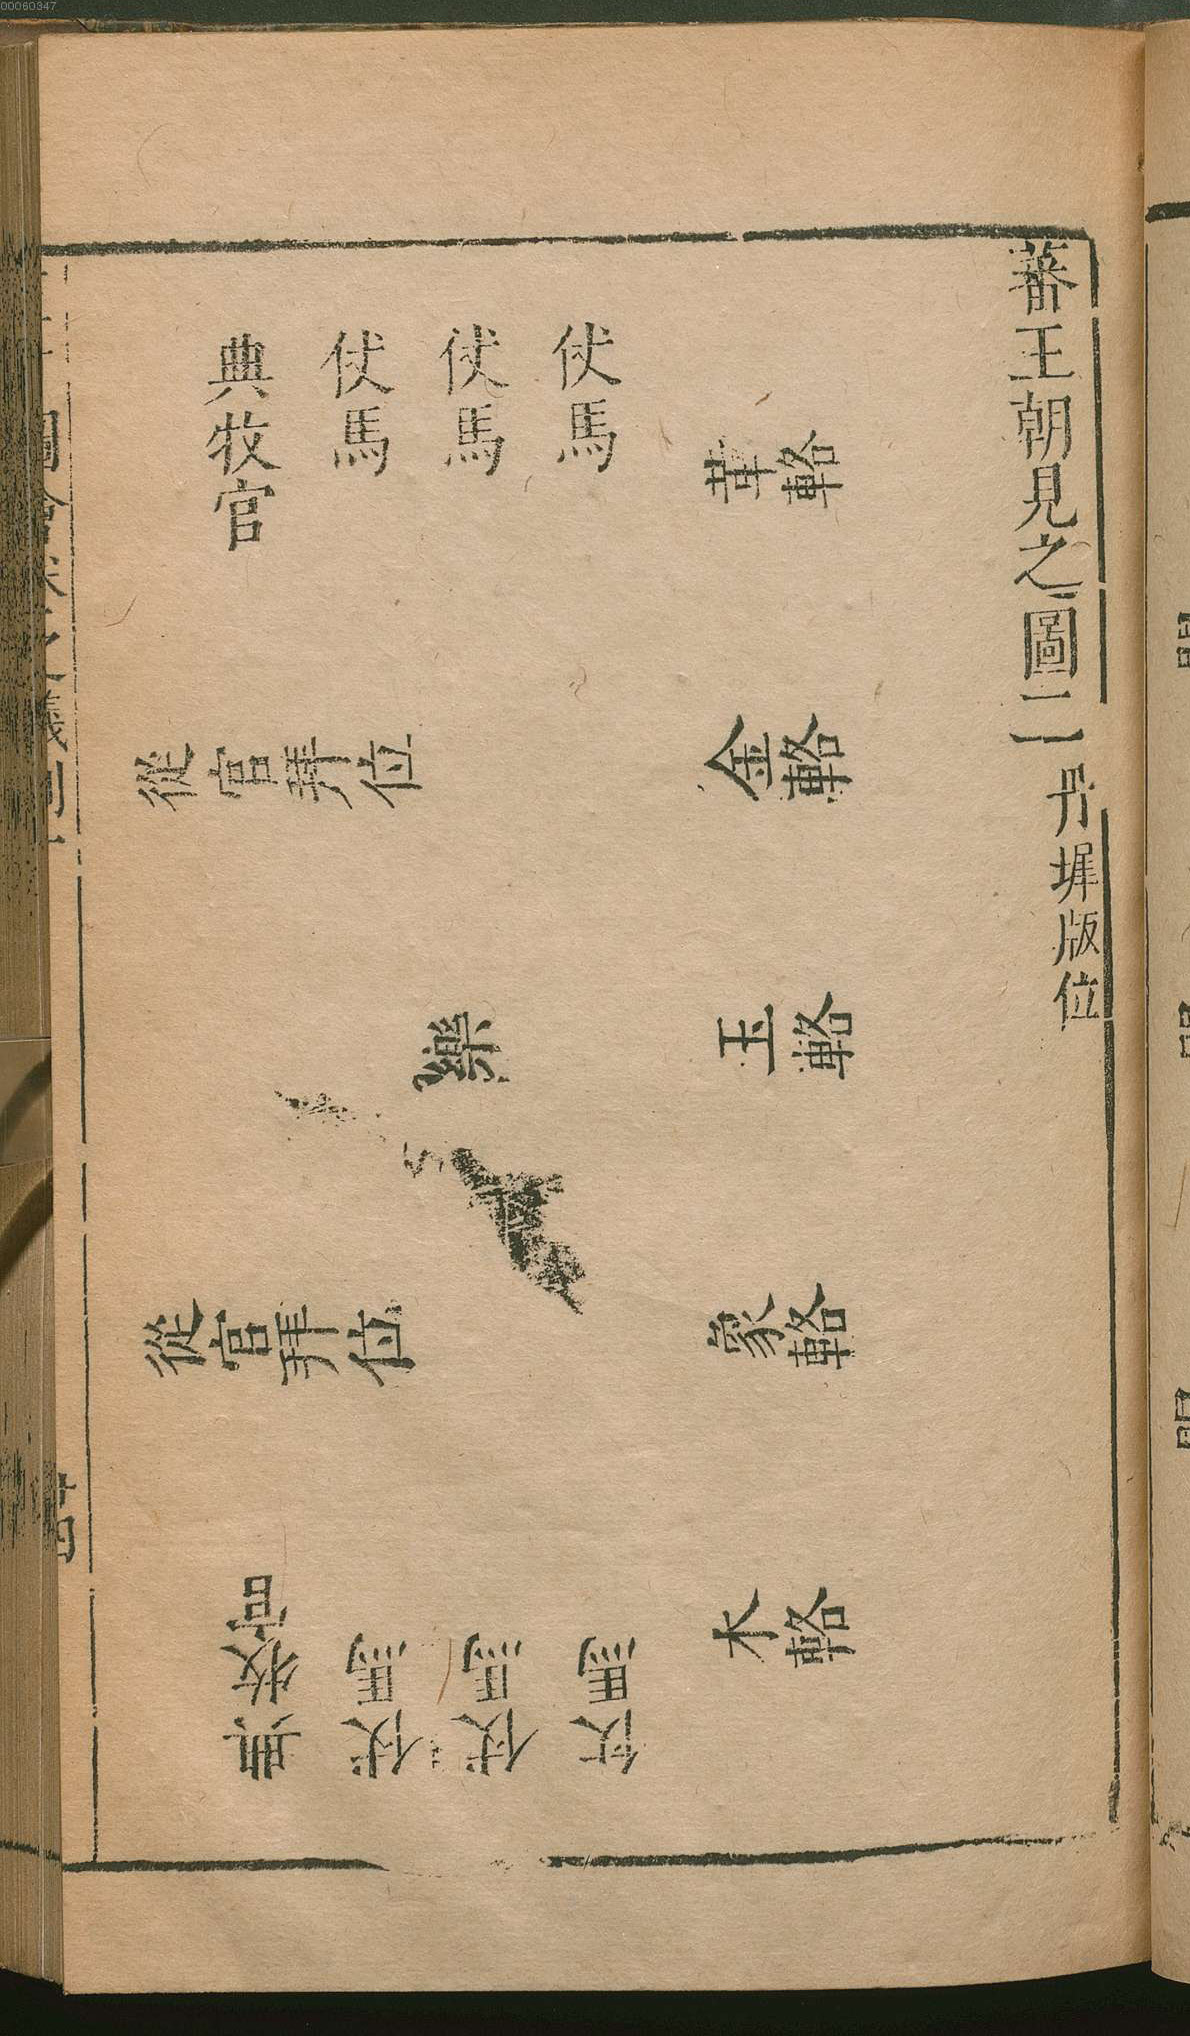 00060347
蕃王朝見之圖二 丹墀版位
革輅
金輅
玉輅
象輅
木輅
仗馬
仗馬
仗馬
典牧官
從官拜位
樂
從官拜位
仗馬
仗馬
仗馬
典牧官